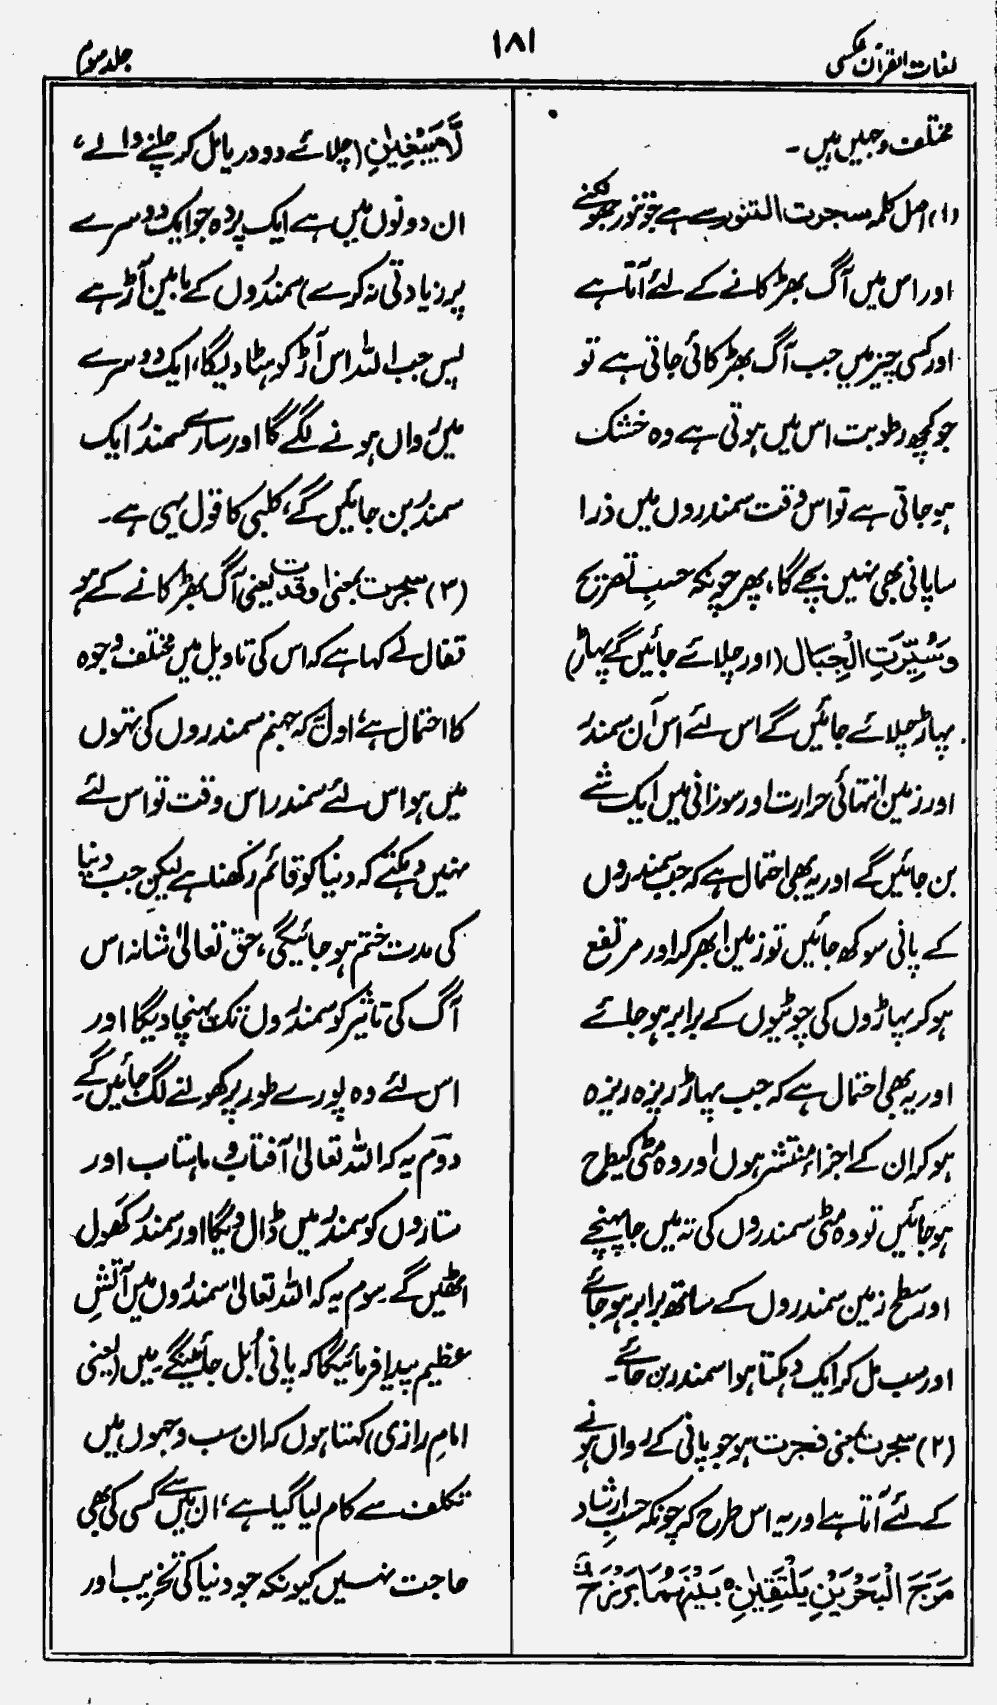 لغات القرآن عکسی
۱۸۱
جلد سوم
مختلف وجہیں ہیں۔
(۱) اصل کلمہ سجرت التنور سے ہے جو تنور جھونکنے
اور اس میں آگ بھڑکانے کے لئے آتا ہے
اور کسی چیز میں جب آگ بھڑکائی جاتی ہے تو
جو کچھ رطوبت اس میں ہوتی ہے وہ خشک
ہو جاتی ہے تو اس وقت سمندروں میں ذرا
سا پانی بھی نہیں بچے گا، پھر چونکہ حسبِ تصریح
وَسُيِّرَتِ الْجِبَال (اور چلائے جائیں گے پہاڑ)
پہاڑ چلائے جائیں گے اس لئے اس آن سمندر
اور زمین انتہائی حرارت اور سوزانی میں ایک شے
بن جائیں گے اور یہ بھی احتمال ہے کہ جب سمندروں
کے پانی سوکھ جائیں تو زمین ابھر کر اور مرتفع
ہو کر پہاڑوں کی چوٹیوں کے برابر ہو جائے
اور یہ بھی احتمال ہے کہ جب پہاڑ ریزہ ریزہ
ہو کر ان کے اجزاء منتشر ہوں اور وہ مٹی کیطرح
ہو جائیں تو وہ مٹی سمندروں کی تہ میں جا پہنچے
اور سطح زمین سمندروں کے ساتھ برابر ہو جائے
اور سب مل کر ایک دہکتا ہوا سمندر بن جائے۔
(۲) سجرت بمعنی فجرت ہو جو پانی کے رواں ہونے
کے لئے آتا ہے اور یہ اس طرح کہ چونکہ حسبِ ارشاد
مَرَجَ الْبَحْرَيْنِ يَلْتَقِيٰنِ ہ بَيْنَهُمَا بَرْزَخٌ
لَّا يَبْغِيٰنِ (چلائے دو دریا مل کر چلنے والے،
ان دونوں میں ہے ایک پردہ جو ایک دوسرے
پر زیادتی نہ کرے) سمندروں کے مابین آڑ ہے
پس جب اللہ اس آڑ کو ہٹا دیگا، ایک دوسرے
میں رواں ہونے لگے گا اور سارے سمندر ایک
سمندر بن جائیں گے، کلبی کا قول یہی ہے۔
(۳) سجرت بمعنی اوقدت یعنی آگ بھڑکانے کے ہو
قفال نے کہا ہے کہ اس کی تاویل میں مختلف وجوہ
کا احتمال ہے، اول یہ کہ جہنم سمندروں کی تہوں
میں ہو اس لئے سمندر اس وقت تو اس لئے
نہیں دہکتے کہ دنیا کو قائم رکھنا ہے لیکن جب دنیا
کی مدت ختم ہو جائیگی، حق تعالیٰ شانہ اس
آگ کی تاثیر کو سمندروں تک پہنچا دیگا اور
اس لئے وہ پورے طور پر کھولنے لگ جائیں گے
دوم یہ کہ اللہ تعالیٰ آفتاب و ماہتاب اور
ستاروں کو سمندر میں ڈال دیگا اور سمندر کھول
اٹھیں گے۔ سوم یہ کہ اللہ تعالیٰ سمندروں میں آتشِ
عظیم پیدا فرمائیگا کہ پانی اُبل جائینگے۔ میں (یعنی
امام رازی) کہتا ہوں کہ ان سب وجہوں میں
تکلف سے کام لیا گیا ہے، ان میں سے کسی کی بھی
حاجت نہیں کیونکہ جو دنیا کی تخریب اور